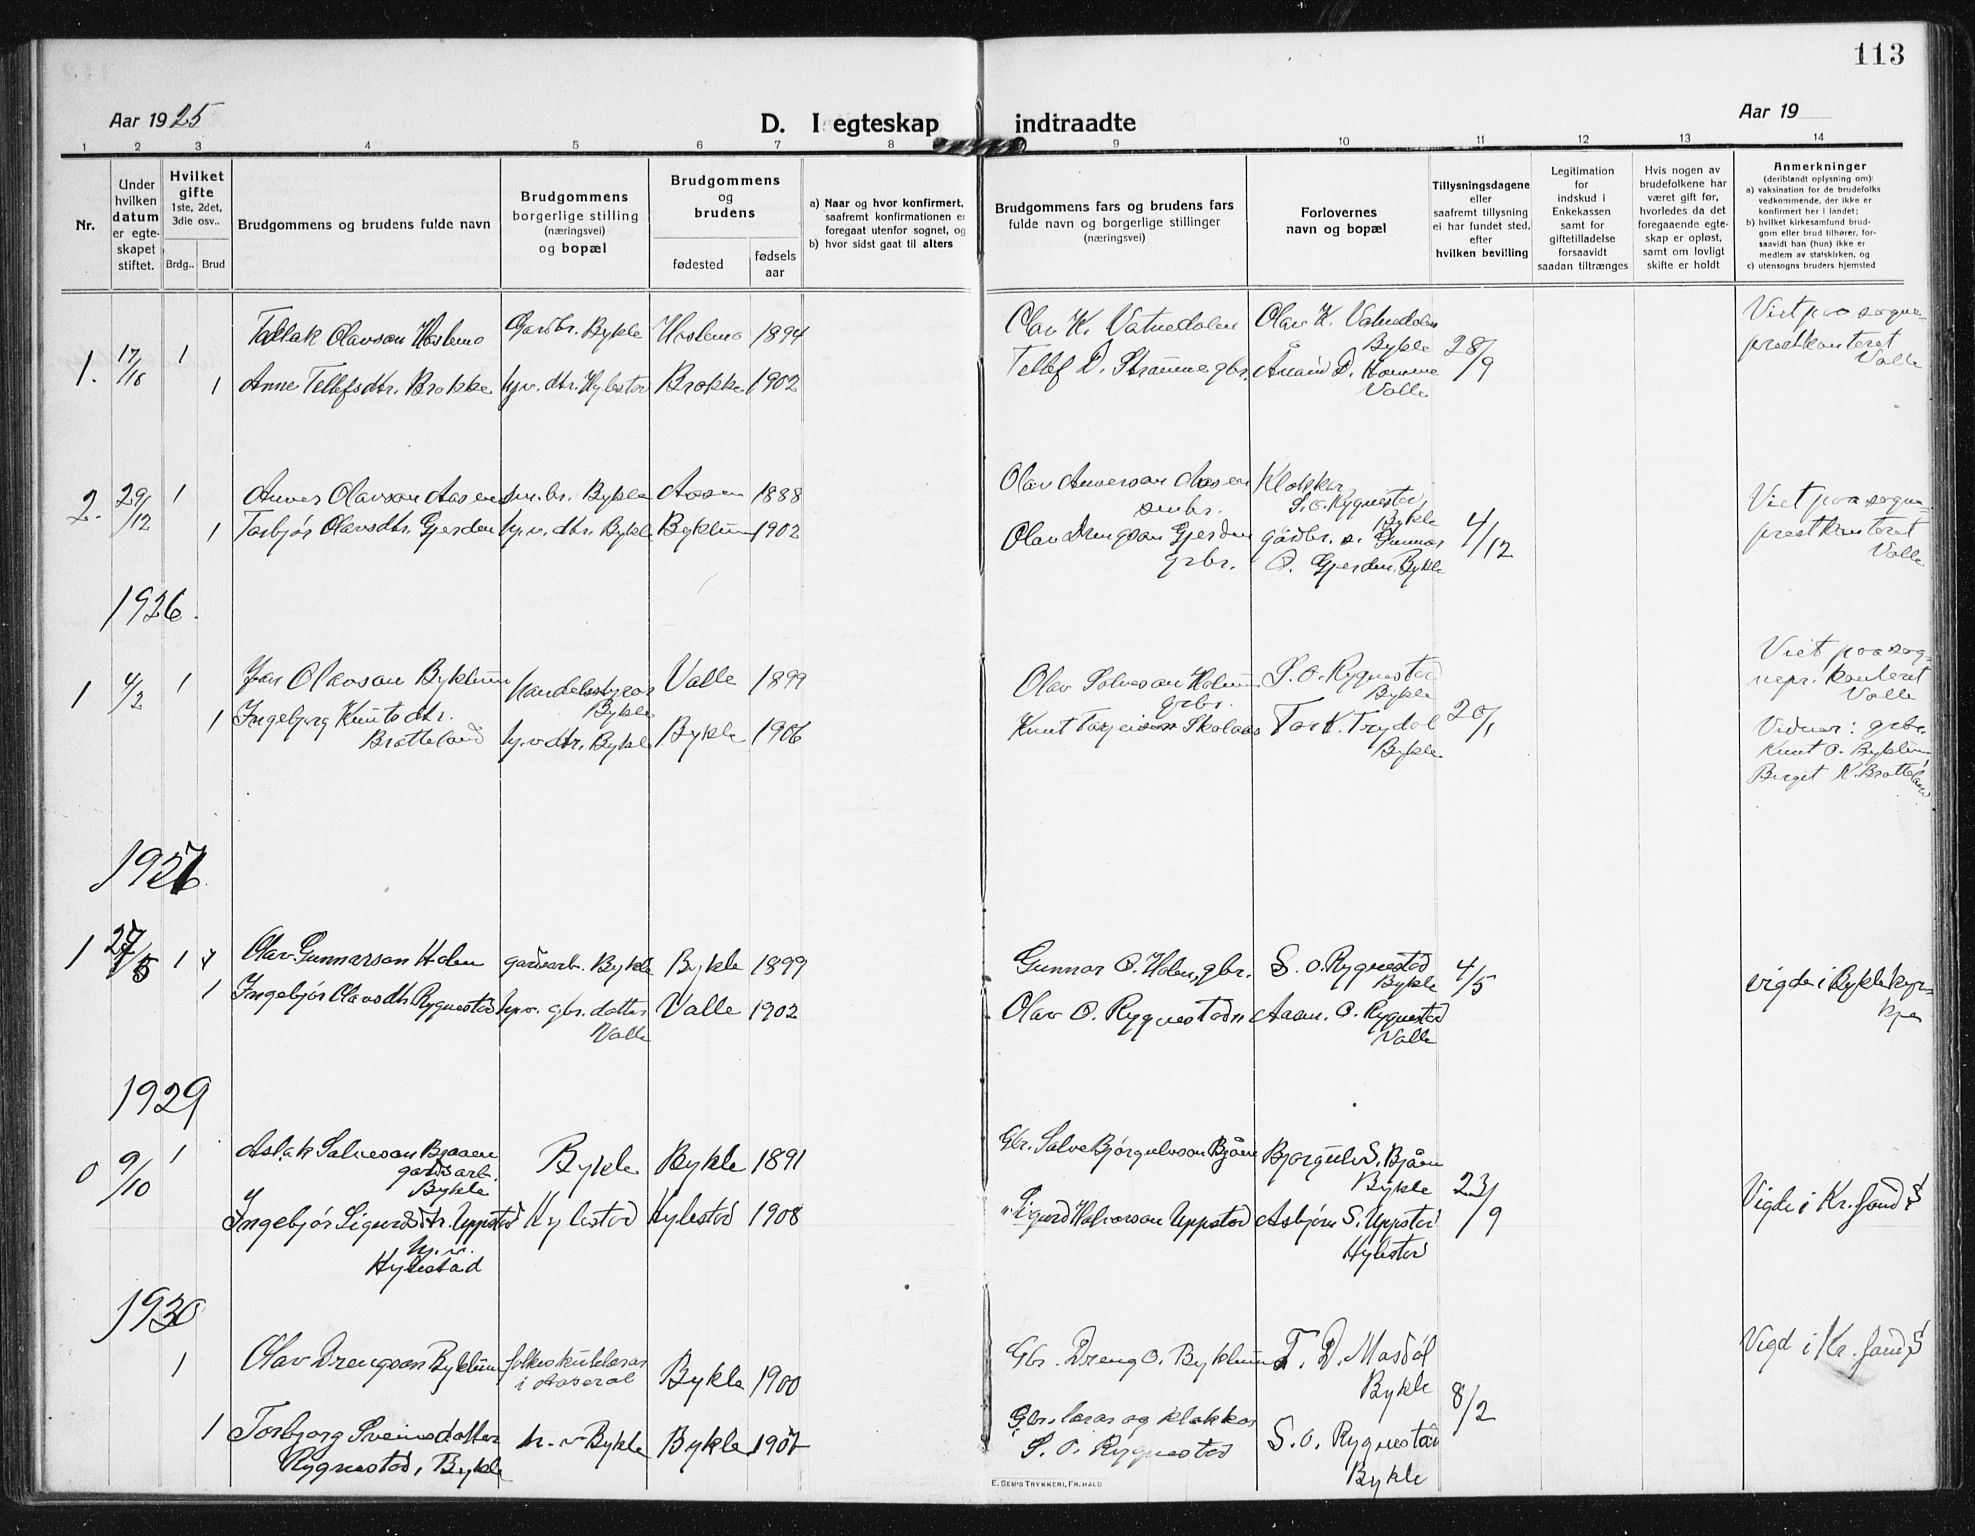 113
Aar 1925
D. I egteskap indtraadte
Aar 19
1 2 3 4 5 6 7 8 9 10 11 12 13 14
Nr.
Under
hvilken
datum
er egte-
skapet
stiftet.
Hvilket
gifte
1ste, 2det,
3die osv..
Brdg.. Brud
Brudgommens og brudens fulde navn
Brudgommens
borgerlige stilling
(næringsvei)
og bopæl
Brudgommens
og
brudens
fødested
fødsels
aar
a) Naar og hvor konfirmert,
saafremt konfirmationen er
foregaat utenfor sognet, og
b) hvor sidst gaat til alters
Brudgommens fars og brudens fars
fulde navn og borgerlige stillinger
(næringsvei)
Forlovernes
navn og bopæl
Tillysningsdagene
eller
saafremt tillysning
ei har fundet sted,
efter
hvilken bevilling
Legitimation
for
indskud i
Enkekassen
samt for
giftetilladelse
forsaavidt
saadan tiltrænges
Hvis nogen av
brudefolkene har
været gift før,
hvorledes da det
foregaaende egte-
skap er opløst,
samt om lovligt
skifte er holdt
Anmerkninger
(deriblandt oplysning om):
a) vaksination for de brudefolks
vedkommende, der ikke er
konfirmert her i landet;
b) hvilket kirkesamfund brud-
gom eller brud tilhører, for-
saavidt han (hun) ikke er
medlem av statskirken, og
c) utensogns bruders hjemsted
1. 17/10 1 Olavson Hoslemo Gardbr. Bykle Hoslemo 1894
1 Anne Tellefsdtr. Brokke hv. dtr. Hylestad Brokke 1902
Olav K. Vatnedalen
Tellef D. Straume gbr.
Olav K. Vatnedalen
Bykle
D. Homme
Valle
28/9
Viet paa sogne-
prestkontoret
Valle
2. 29/12 1 Anver Olavson Aasen sm.br. Bykle Aasen 1888
1 Torbjør Olavsdtr. Gjerden hv. dtr. Bykle Byklum 1902
Olav Anverson Aasen
smbr.
Olav Drengson Gjerden
grbr.
Klokker
S. O. Rygnestad,
Bykle
gardbr. Gunnar
O. Gjerden, Bykle
4/12
Viet paa sogne-
prestkontoret
Valle
1926.
1 4/2 1 Jon Olavson Byklum
Bykle
Valle 1899
1 Ingebjørg Knutsdtr.
Bratteland
hv. dtr. Bykle Bykle 1906
Olav Salveson Holum
grbr.
Knut Torjeison Skolaas
S. O. Rygnestad
Bykle
Tor K. Trydal
Bykle
20/1
Viet paa sog-
nepr. kontoret
Valle
Vidner: grbr.
Knut O. Byklum
Birget K. Bratteland
1927.
1 27/5 1 Olav Gunnarson Holen gardsarb. Bykle Bykle 1899
1 Ingebjør Olavsdtr. Rygnestad hv. gbr. dotter
Valle
Valle 1902
Gunnar O. Holen, gbr.
Olav O. Rygnestad
S. O. Rygnestad
Bykle
Aasm. O. Rygnestad
Valle
4/5
vigde i Bykle kyr-
kje
1929
0 9/10 1 Aslak Salveson Bjaaen
gardsarb.
Bykle
Bykle Bykle 1891
Ingebjør Sigurdsdtr. Uppstad
h.v.
Hylestad
Hylestad Hylestad 1908
Gbr. Salve Bjørgulvson Bjåen
" Sigurd Halvorson Uppstad
Bjørgulv S. Bjåen
Bykle
Asbjørn S. Uppstad
Hylestad
23/9
Vigde i Kr.sand S
1930
1 Olav Drengson Byklum folkeskulelærar
i Aaseral
Bykle 1900
1 Torbjørg Sveinsdotter
Rygnestad, Bykle
h.v Bykle Bykle
Gbr. Dreng O. Byklum
Gbr. lærar og klokkar
S. O. Rygnestad
T. D. Mosdøl
Bykle
S. O. Rygnestad
Bykle
8/2
Vigd i Kr.sand S
E. SEM'S TRYKKERI, FR.HALD